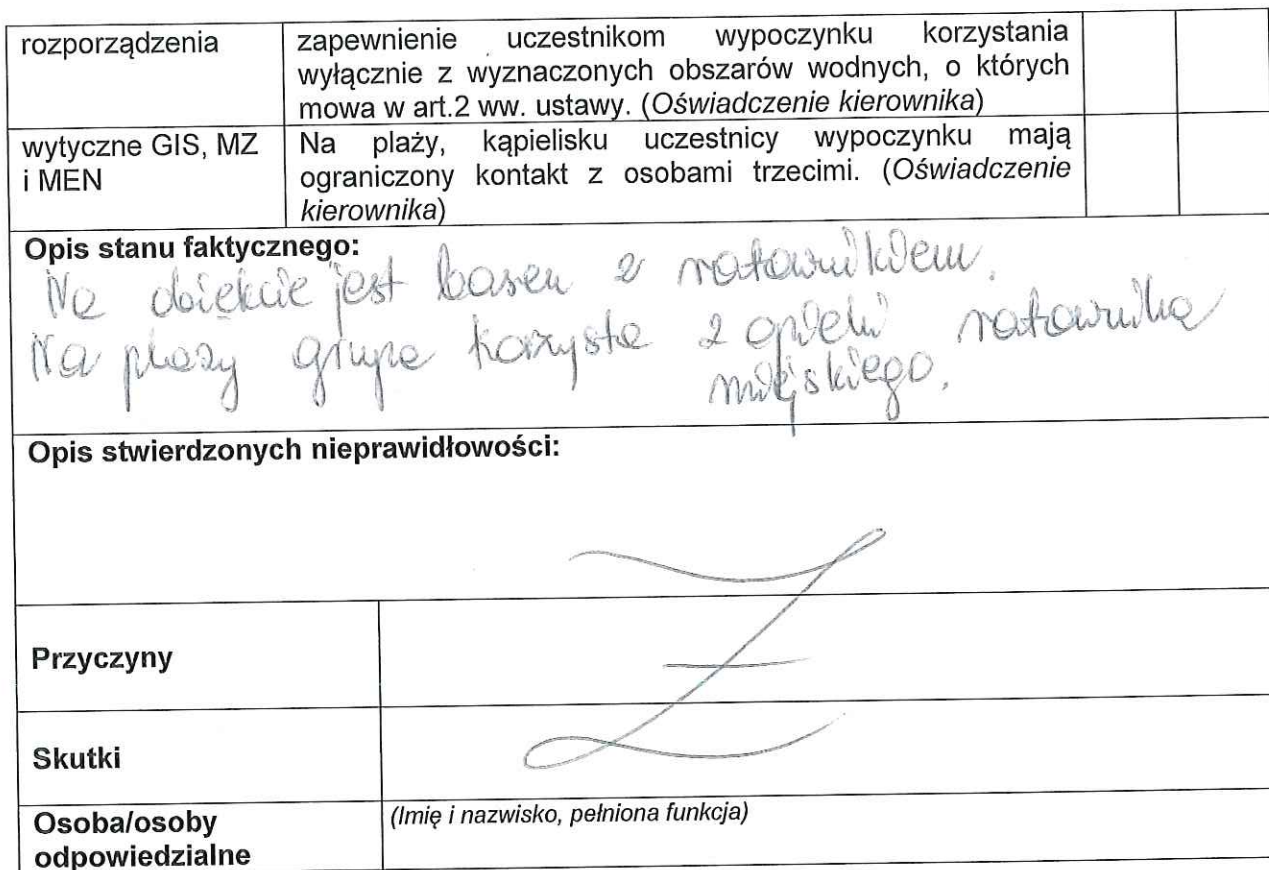 rozporządzenia
zapewnienie uczestnikom wypoczynku korzystania
wyłącznie z wyznaczonych obszarów wodnych, o których
mowa w art.2 ww. ustawy. (Oświadczenie kierownika)
wytyczne GIS, MZ
i MEN
Na plaży, kąpielisku uczestnicy wypoczynku mają
ograniczony kontakt z osobami trzecimi. (Oświadczenie
kierownika)
Opis stanu faktycznego:
Na obiekcie jest basen z ratownikiem.
Na plaży grupa korzysta z opieki ratownika
miejskiego.
Opis stwierdzonych nieprawidłowości:
Przyczyny
Skutki
Osoba/osoby
odpowiedzialne
(Imię i nazwisko, pełniona funkcja)